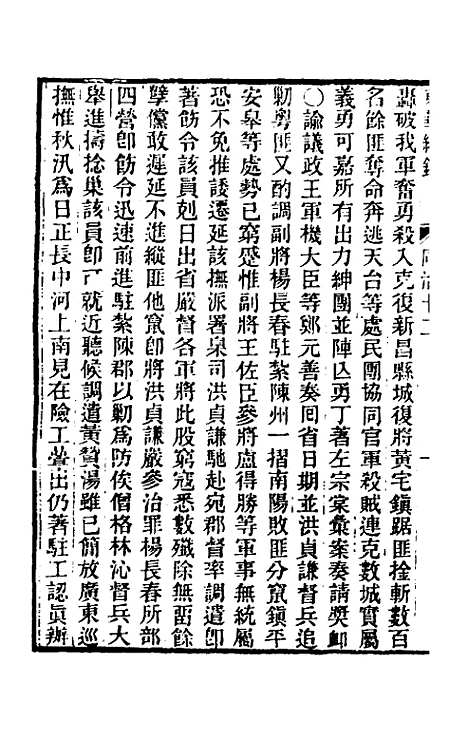 轟破我軍奮勇殺入克復新昌縣城復將黃宅鎮踞匪拴斬數百
名餘匪奪命奔逃天台等處民團協同官軍殺賊連克數城實屬
義勇可嘉所有出力紳團並陣亾勇丁著左宗棠彙案奏請奬卹
〇諭議政王軍機大臣等鄭元善奏囘省日期並洪貞謙督兵追
勦粵匪又酌調副將楊長春駐紮陳州一摺南陽敗匪分竄鎮平
安皋等處勢已窮蹙惟副將王佐臣參將盧得勝等軍事無統屬
恐不免推諉遷延該撫派署臬司洪貞謙馳赴宛郡督率調遣卽
著飭令該員剋日出省嚴督各軍將此股窮寇悉數殲除無畱餘
孽儻敢遲延不進縱匪他竄卽將洪貞謙嚴參治罪楊長春所部
四營卽飭令迅速前進駐紮陳郡以勦爲防俟僧格林沁督兵大
舉進擣捻巢該員卽可就近聽候調遣黃贊湯雖已簡放廣東巡
撫惟秋汛爲日正長中河上南見在險工疊出仍著駐工認眞辦